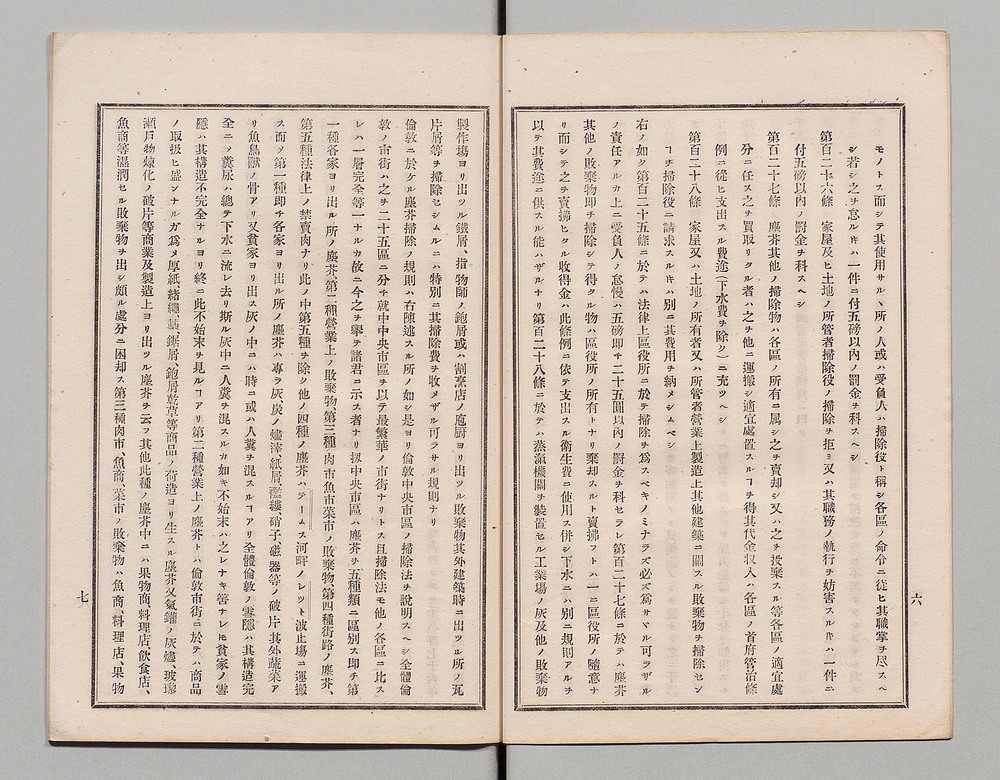 モノトス而シテ其使用サルヽ所ノ人或ハ受負人ハ掃除役ト稱シ各區ノ命令ニ從ヒ其職掌ヲ尽スヘ
シ若シ之ヲ怠ルキハ一件ニ付五磅以內ノ罰金ヲ科スヘシ
第百二十六條 家屋及ヒ土地ノ所管者掃除役ノ掃除ヲ拒ミ又ハ其職務ノ執行ヲ妨害スルキハ一件ニ
付五磅以內ノ罰金ヲ科スヘシ
第百二十七條 塵芥其他ノ掃除物ハ各區ノ所有ニ属シ之ヲ賣却シ又ハ之ヲ投棄スル等各區ノ適宜處
分ニ任ス之ヲ買取リタル者ハ之ヲ他ニ運搬シ適宜處置スルヿヲ得其代金収入ハ各區ノ首府管治條
例ニ從ヒ支出スル費途(下水費ヲ除ク)ニ充ツヘシ
第百二十八條 家屋又ハ土地ノ所有者又ハ所管者營業上製造上其他建築ニ關スル敗棄物ヲ掃除セン
ヿヲ掃除役ニ請求スルキハ別ニ其費用ヲ納メシムベシ
右ノ如ク第百二十五條ニ於テハ法律上區役所ニ於テ掃除ヲ爲スベキノミナラズ必ズ爲サヾル可ラザル
ノ責任アルカ上ニ受負人ノ怠慢ハ五磅即チ二十五圓以內ノ罰金ヲ科セラレ第百二十七條ニ於テハ塵芥
其他ノ敗棄物即チ掃除シテ得タル物ハ區役所ノ所有トナリ棄却スルト賣拂フトハ一ニ區役所ノ隨意ナ
リ而シテ之ヲ賣拂ヒタル收得金ハ此條例ニ依テ支出スル衛生費ニ使用ス併シ下水ニハ別ニ規則アルヲ
以テ其費途ニ供スル能ハザルナリ第百二十八條ニ於テハ蒸瀛機關ヲ裝置セル工業場ノ灰及他ノ敗棄物
六
製作場ヨリ出ツル鐵屑、指物師ノ鉋屑或ハ割烹店ノ庖厨ヨリ出ツル敗棄物其外建築時ニ出ツル所ノ瓦
片屑等ヲ掃除セシムルニハ特別ニ其掃除費ヲ收メザル可ラサル規則ナリ
倫敦ニ於ケル塵芥掃除ノ規則ハ右陳述スル所ノ如シ是ヨリ倫敦中央市區ノ掃除法ヲ說明スヘシ全體倫
敦ノ市街ハ之ヲ二十五區ニ分チ就中中央市區ヲ以テ最繁華ノ市街ナリトス且掃除法モ他ノ各區ニ比ス
レハ一層完全等一ナルカ故ニ今之ヲ擧テ諸君ニ示ス者ナリ扨中央市區ハ塵芥ヲ五種類ニ區別ス即チ第
一種各家ヨリ出ル所ノ塵芥、第二種營業上ノ敗棄物、第三種肉市魚市菜市ノ敗棄物、第四種街路ノ塵芥、
第五種法律上ノ禁賣肉ナリ此ノ中第五種ヲ除ク他ノ四種ノ塵芥ハテームス河畔ノレツト波止場ニ運搬
ス而ノ第一種即チ各家ヨリ出ル所ノ塵芥ハ專ラ灰炭ノ燼滓紙屑、襤褸、硝子磁器等ノ破片其外蔬菜ア
リ魚鳥獸ノ骨アリ又貧家ヨリ出ス灰ノ中ニハ時ニ或ハ人糞ヲ混スルヿアリ全體倫敦ノ雪隱ハ其構造完
全ニノ糞尿ハ總テ下水ニ流レ去リ斯ル灰中ニ人糞ヲ混スルカ如キ不始末ハ之レナキ筈ナレ𪜈貧家ノ雪
隱ハ其構造不完全ナルヨリ終ニ此不始末ヲ見ルヿアリ第二種營業上ノ塵芥トハ倫敦市街ニ於テハ商品
ノ取扱ヒ盛ンナルガ爲メ厚紙、緒繩、藁、鋸屑、鉋屑、乾草等商品ノ荷造ヨリ生スル塵芥又氣鑵ノ灰燼、玻瓈
瀨戶物煉化ノ破片等商業及製造上ヨリ出ツル塵芥ヲ云フ其他此種ノ塵芥中ニハ果物商、料理店、飮食店、
魚商等濕潤セル敗棄物ヲ出シ頗ル處分ニ困却ス第三種肉市、魚商、菜市ノ敗棄物ハ魚商、料理店、果物
七